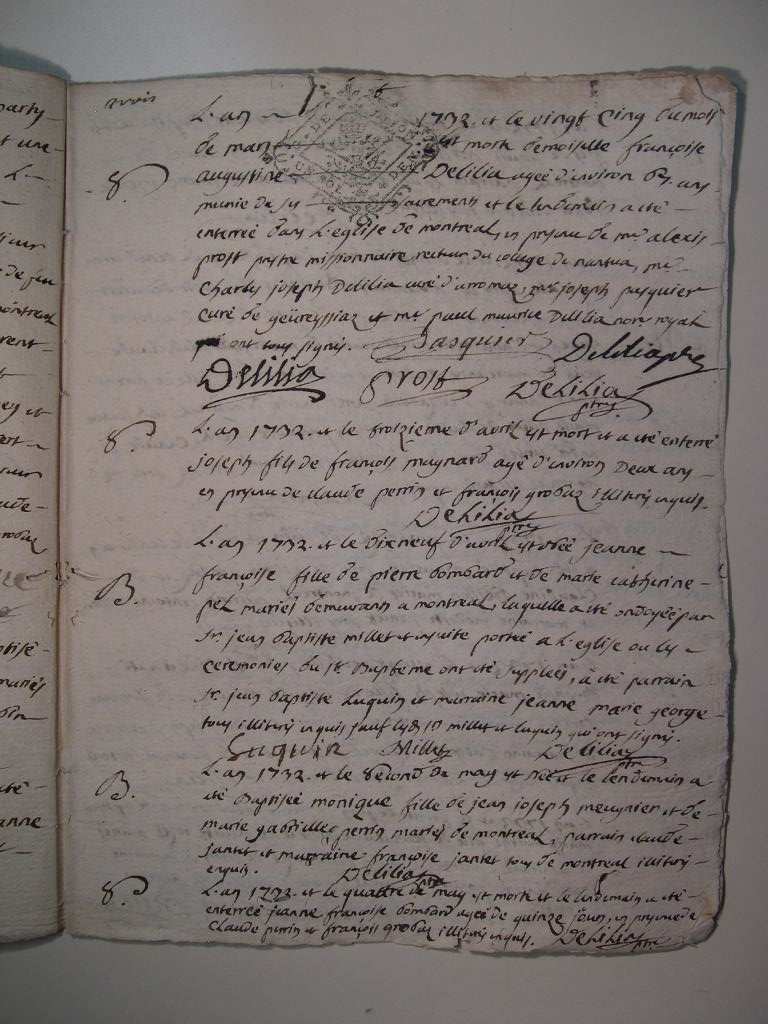 trois
L'an 1732. et le vingt cinq du mois
de mars est morte demoiselle françoise
augustine Delilia agée d'environ ans
munie de ses sacrements et le lendemain a été
enterreé dans L'église de montreal, en presence de mr. alexis
prost prestre missionnaire recteur du college de nantua, mr.
Charles joseph Delilia curé d'arromaz, mre joseph pasquier
curé de geüreyssiaz et mr. paul maurice Delilia nore royal
qui ont tous signés. Pasquier Delilia ptre
Delilia Prost Delilia
ptre
S. L'an 1732. et le troizieme d'avril est mort et a eté enterré
joseph fils de françois maynard agé d'environ Deux ans
en presence de claude perrin et françois grobaz illiterés enquis.
Delilia
ptre
L'an 1732. et le dixneuf d'avril est née jeanne
B. françoise fille de pierre bombard et de marie catherine
mariés demeurants a montreal, laquelle a eté ondoyée par
Sr. jean baptiste millet et ensuite portée a L'eglise ou les
ceremonies du St. Baptême ont eté suppleés, a été parrain
Sr. jean baptiste Luquin et marraine jeanne marie george
tous illiterés enquis sauf lesd. Srs millet et luquin qui ont signés.
Luquin Millet Delilia
ptre
L'an 1732. et le second de may est née et le lendemain a
B. été Baptisée monique fille de jean joseph meugnier et de
marie gabrielle perrin mariés de montreal, parrain claude
jantet et marraine françoise jantet tous de montreal illiterés
enquis. Delilia
ptre
S. L'an 1732. et le quattre de may est morte et le lendemain a eté
enterreé jeanne françoise bombard ageé de quinze jours, en presence de
Claude perrin et françois grobaz illiterés enquis. Delilia
ptre